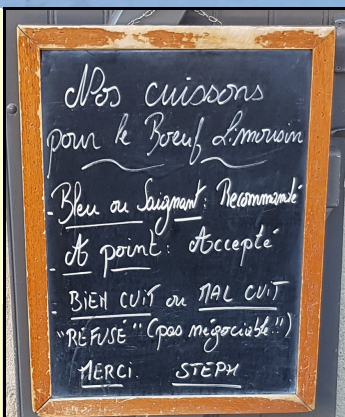 Nos cuissons
pour le Boeuf Limousin
- Bleu ou Saignant : Recommandé
- A point : Accepté
- BIEN CUIT ou MAL CUIT
"REFUSÉ" (pas négociable !!)
MERCI. STEPH